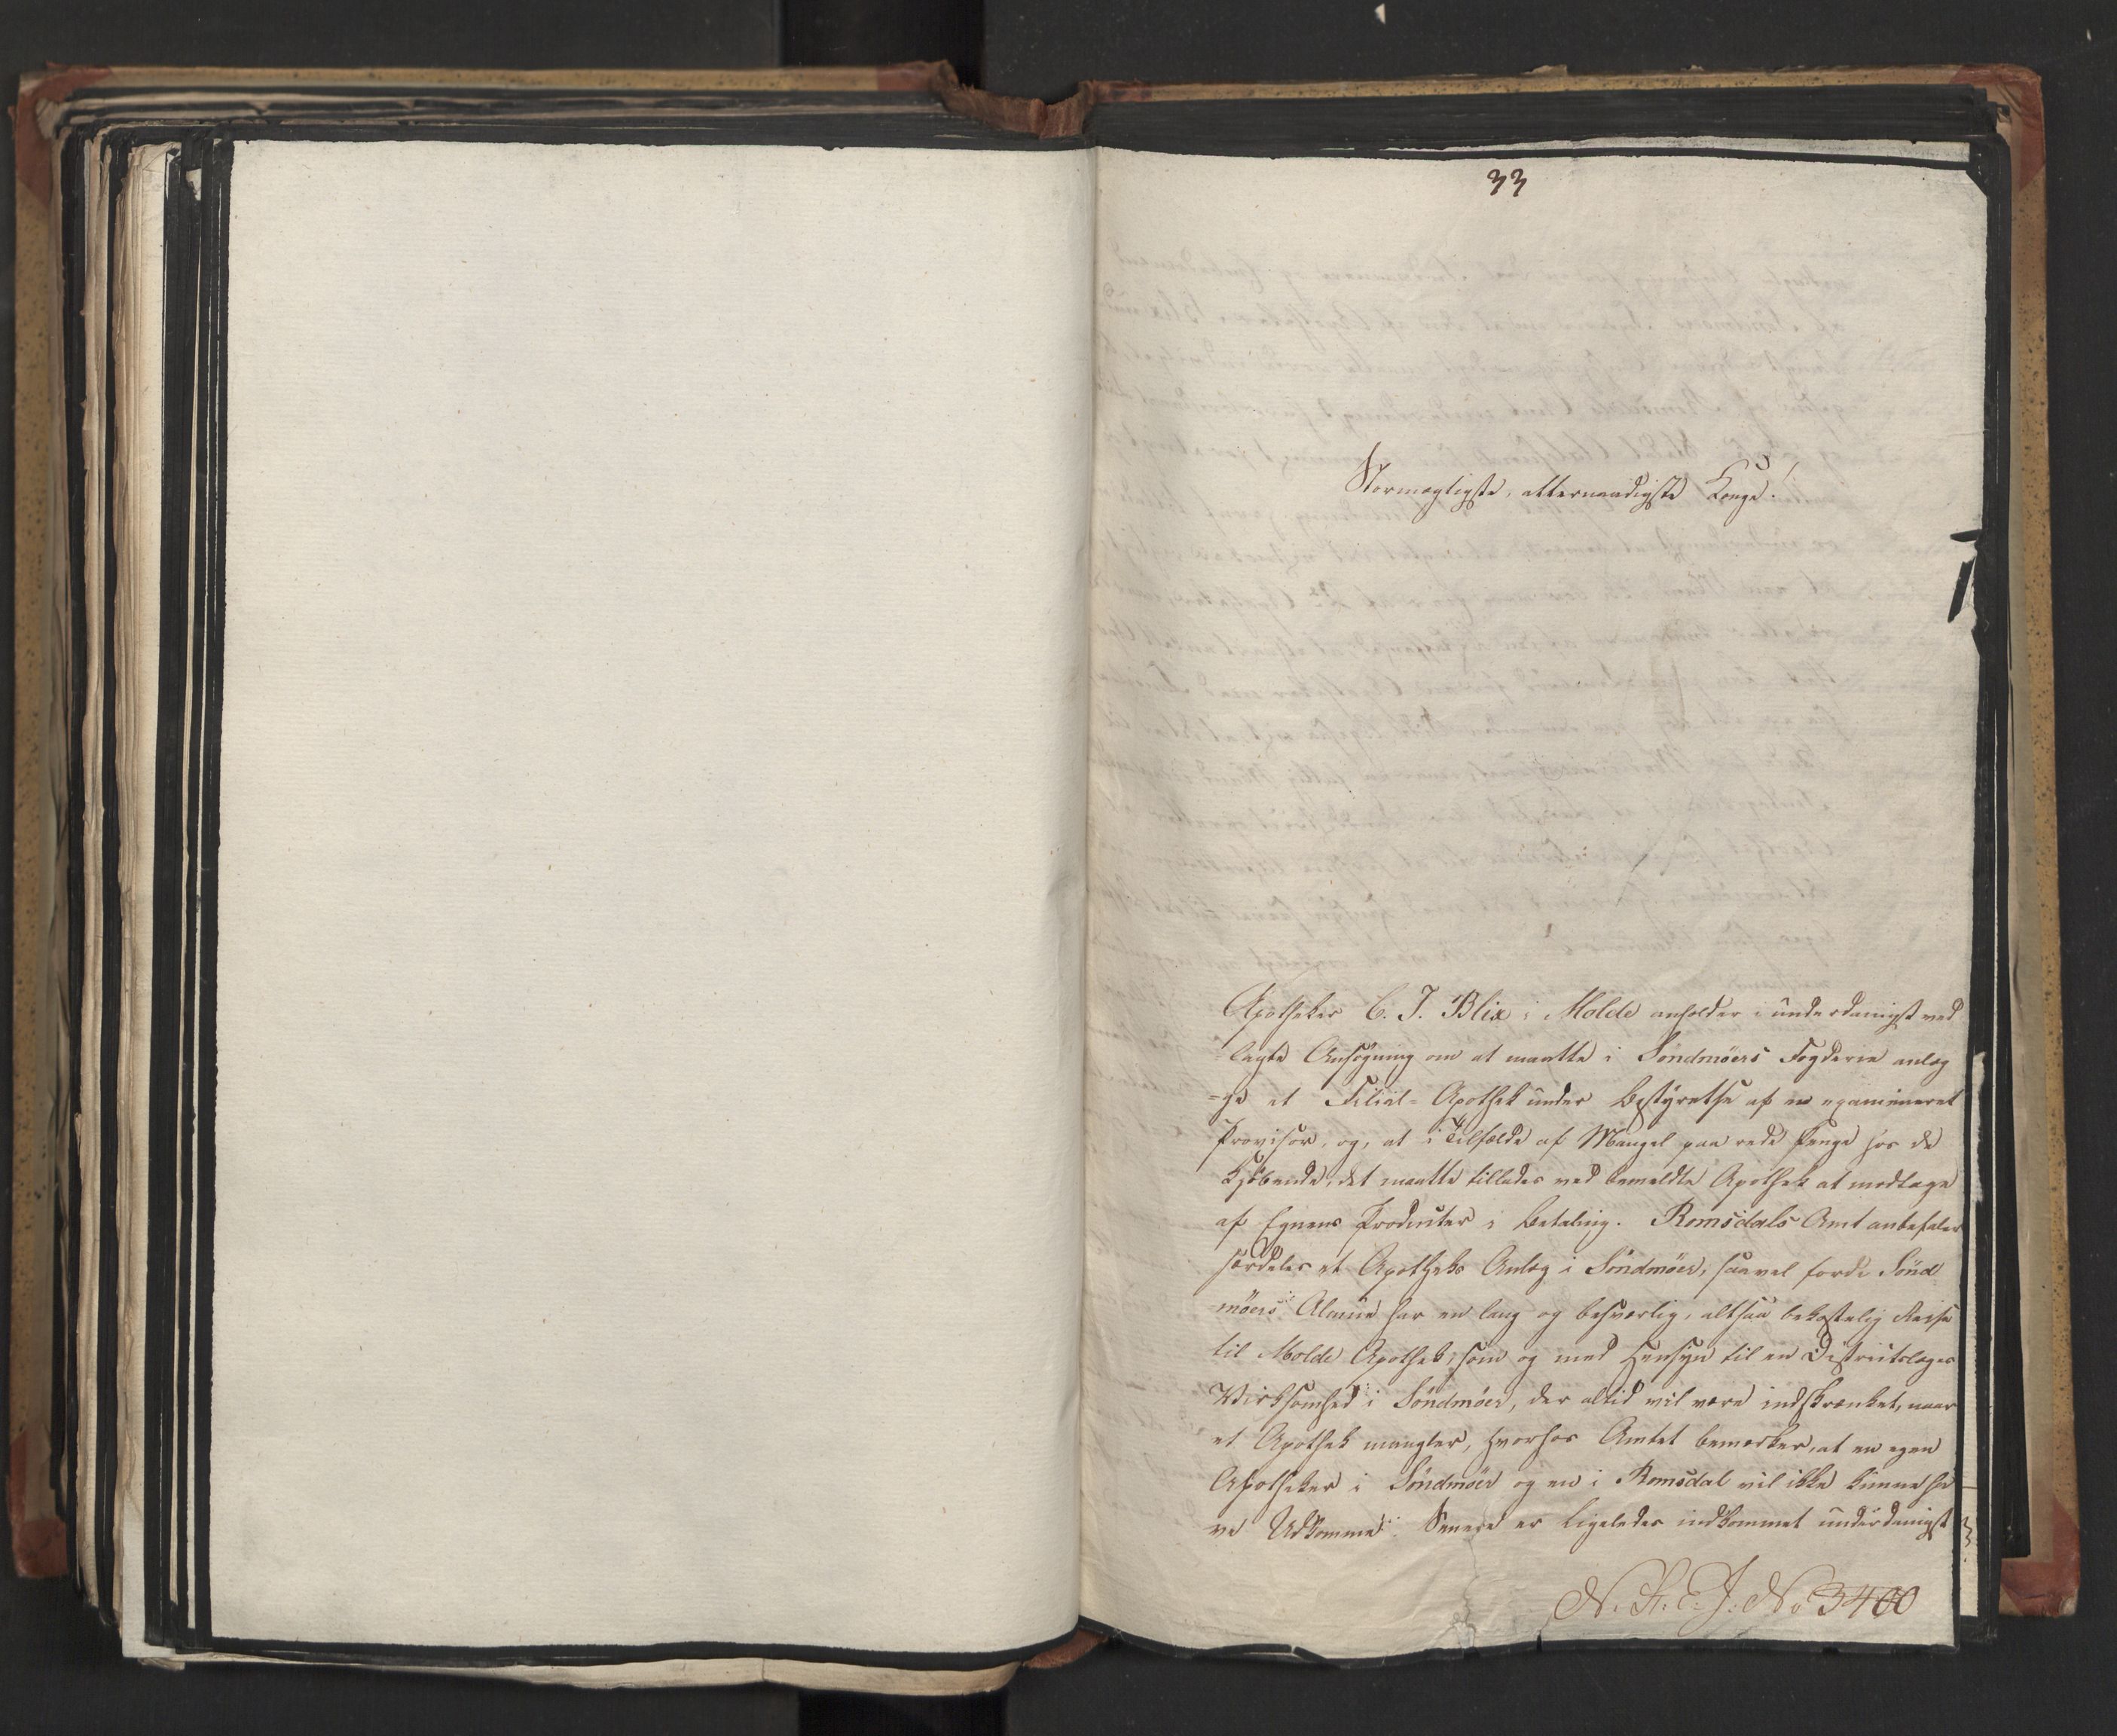 33
Stormægtigste, allernaadigste Konge!
Apotheker C. J. Blix i Molde anholder i underdanigst ved
=lagte Ansøgning om at maatte i Søndmöers Fogderie anlæg
=ge et Filial= Apothek under Bestyrelse af en examineret
Provisor, og, at i Tilfælde af Mangel paa rede Penge hos de
Kjöbende, det maatte tillades ved bemeldte Apothek at modtage
af Egnens Producter i Betaling. Romsdals Amt anbefaler
særdeles et Apotheks Anlæg i Söndmöer, saavel fordi Sönd
möers Almue har en lang og besværlig, altsaa bekostelig Reise
til Molde Apothek, som og med Hensyn til en Districtslæges
Virksomhed i Söndmöer, der altid vil være indskrænket, naar
et Apothek mangler, hvorhos Amtet bemærker, at en egen
Apotheker i Söndmöer og en i Romsdal vil ikke kunne ha
ve Udkomme. Senere er ligeledes indkommet underdanigst
N. R. E. J. No 3400